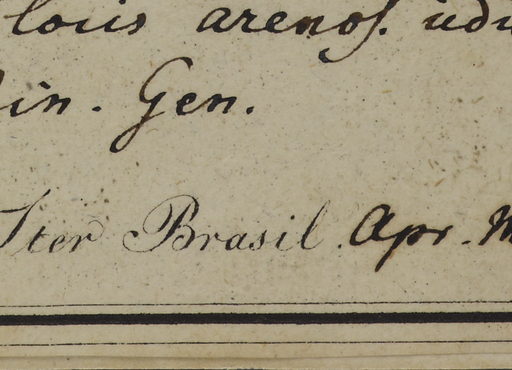 locis arenos. udu
in. Gen.
Iter Brasil. Apr. M